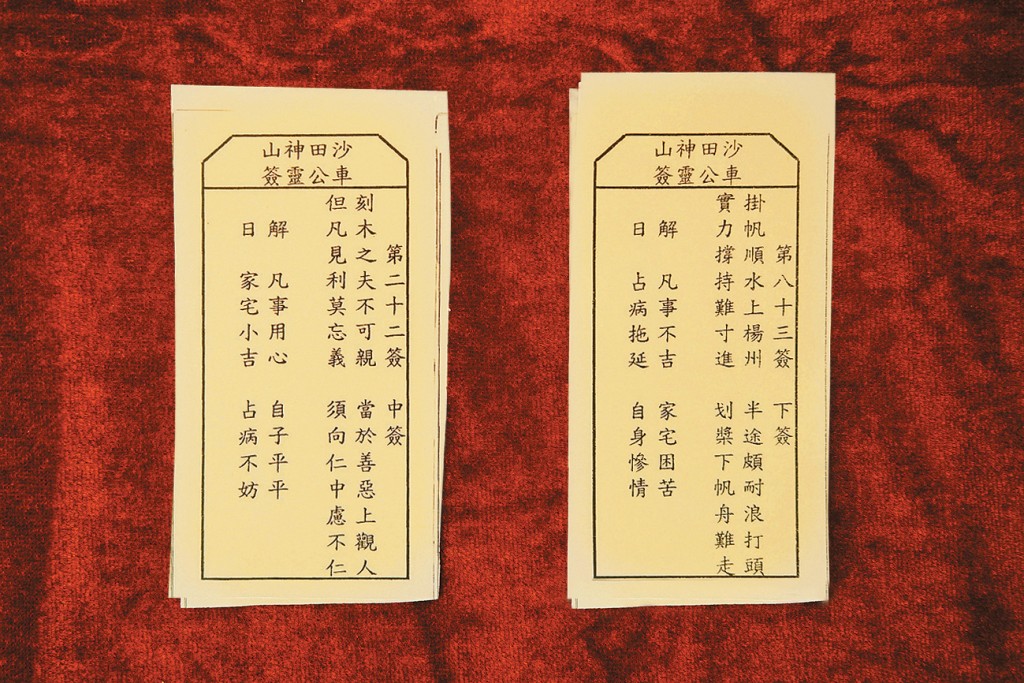 沙田神山
車公靈簽
第二十二簽 中簽
刻木之夫不可親 當於善惡上觀人
但凡見利莫忘義 須向仁中慮不仁
解 凡事用心 自子平平
日 家宅小吉 占病不妨
沙田神山
車公靈簽
第八十三簽 下簽
掛帆順水上楊州 半途頗耐浪打頭
實力撐持難寸進 划槳下帆舟難走
解 凡事不吉 家宅困苦
日 占病拖延 自身慘情